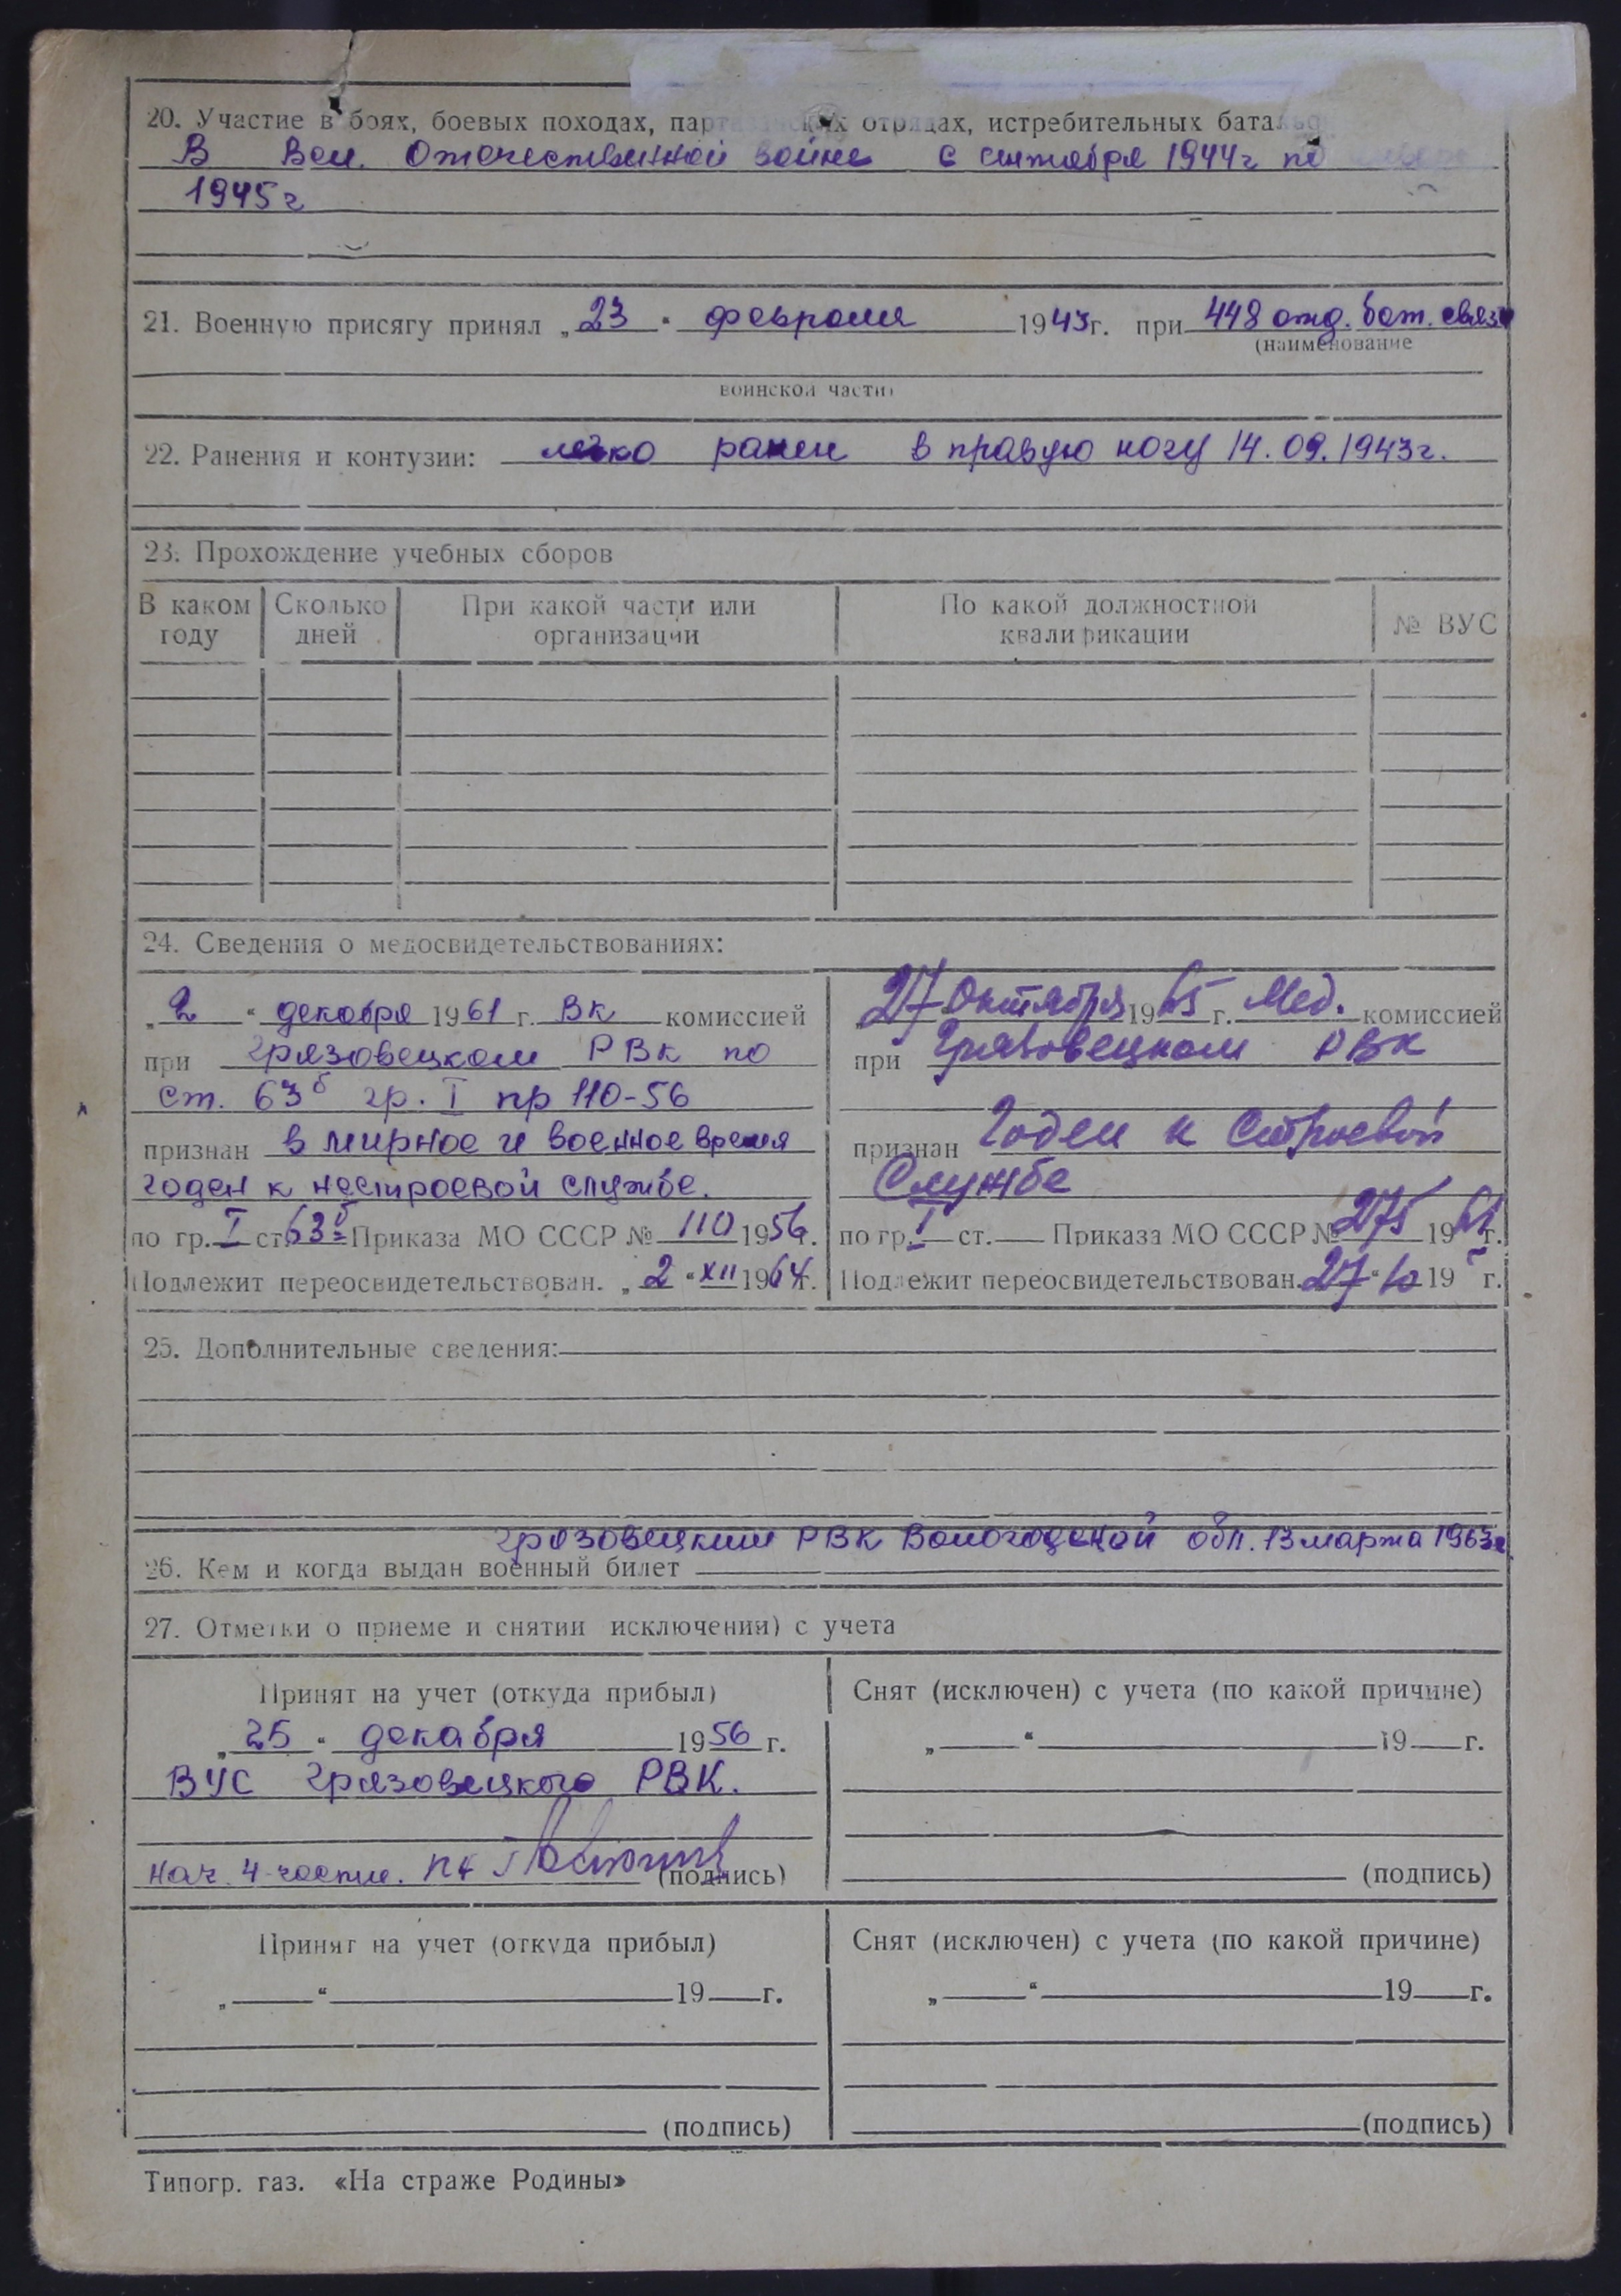 20. Участие в боях, боевых походах, партизанских отрядах, истребительных батальо
В Вел. Отечественной войне с сентября 1944г по
1945г
21. Военную присягу принял „23“ февраля 1943г. при 448 отд. бат. связи
(наименование
воинской части)
22. Ранения и контузии: легко ранен в правую ногу 14.09.1943г.
23. Прохождение учебных сборов
В каком году Сколько дней При какой части или организации По какой должностной квалификации № ВУС
24. Сведения о медосвидетельствованиях:
„2“ декабря 1961 г. ВК комиссией
при Грязовецком РВК по
ст. 63б гр. I пр 110-56
признан в мирное и военное время
годен к нестроевой службе.
по гр. I ст. 63б Приказа МО СССР № 110 1956г.
Подлежит переосвидетельствован. „2“ XII 1964г.
„27 Октября 1965 г. Мед. комиссией
при Грязовецком РВК
признан Годен к Строевой
Службе
по гр. I ст. — Приказа МО СССР № 275 19 г.
Подлежит переосвидетельствован. 27“ 10 19 г.
25. Дополнительные сведения:
Грязовецким РВК Вологодской обл. 13 марта 1963г
26. Кем и когда выдан военный билет
27. Отметки о приеме и снятии исключении) с учета
Принят на учет (откуда прибыл)
„25“ декабря 1956 г.
ВУС Грязовецкого РВК.
нач. 4 части. (подпись)
Снят (исключен) с учета (по какой причине)
„ “ 19 г.
(подпись)
Принят на учет (откуда прибыл)
„ “ 19 г.
(подпись)
Снят (исключен) с учета (по какой причине)
„ “ 19 г.
(подпись)
Типогр. газ. «На страже Родины»